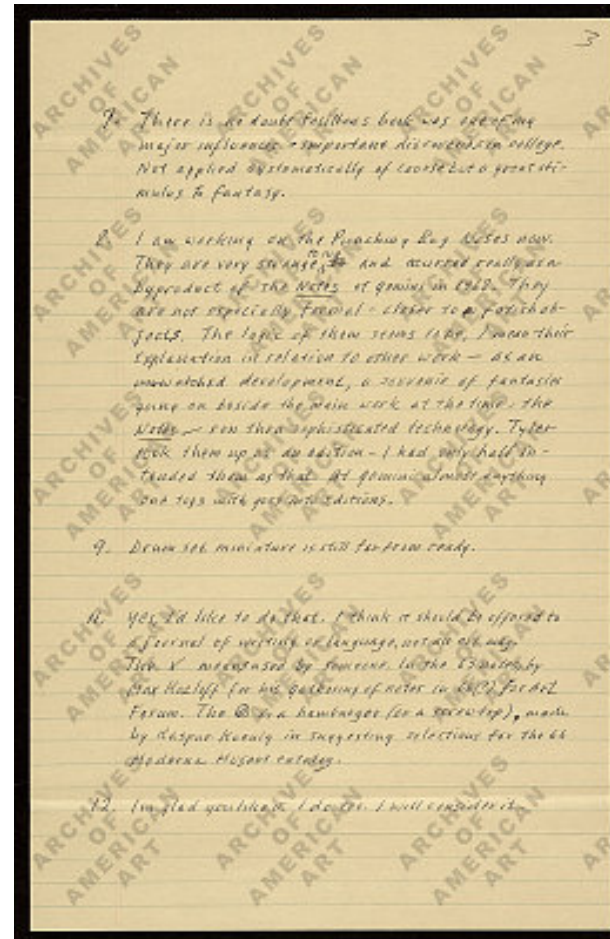 3
7. There is no doubt             book was one of my
major influences + important discoveries in college.
Not applied systematically of course but a great sti-
mulus to fantasy.
8. I am working on the Punching Bag Notes now.
They are very strange, to me and occurred really as a
byproduct of the Notes at Gemini in 1968. They
are not especially formal - closer to fetish ob-
jects. The logic of them seems to be, I mean their
explanation in relation to other work — as an
unwatched development, a souvenir of fantasies
going on beside the main work at the time, the
Notes — run thru sophisticated technology. Tyler
took them up as an edition - I had only half in-
tended them as that. At Gemini almost anything
one toys with goes into editions.
9. Drum set miniature is still far from ready.
11. Yes, I'd like to do that. I think it should be offered to
a journal of writing or language, not an art mag.
The V means used by someone. In the 63 notes, by
Max Kozloff for his gathering of notes in 66(?) for Art
Forum. The        a hamburger (or a screwtop), made
by Kaspar Koenig in suggesting selections for the 66
Moderna Museet catalog.
12. I'm glad you like it. I do too. I will consider it.
ARCHIVES
OF
AMERICAN
ART